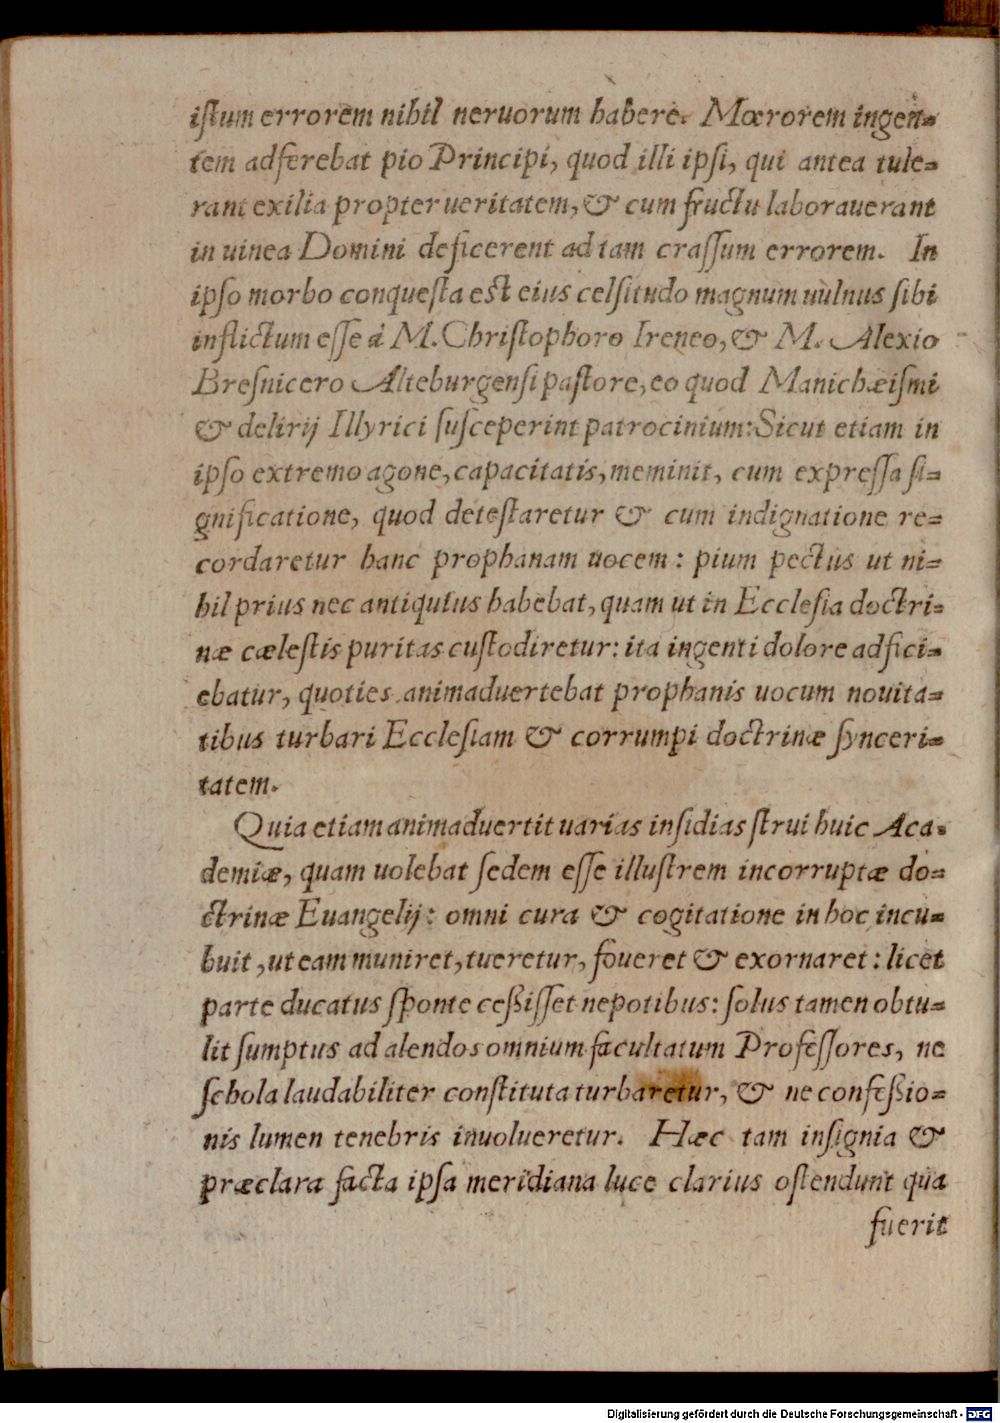 iſtum errorem nihil neruorum habere. Mœrorem ingen-
tem adferebat pio Principi, quod illi ipſi, qui antea tule-
rant exilia propter ueritatem, & cum fructu laborauerant
in uinea Domini deficerent ad tam craſſum errorem. In
ipſo morbo conqueſta eſt eius celſitudo magnum uulnus ſibi
inflictum eſſe à M. Chriſtophoro Ireneo, & M. Alexio
Breſnicero Alteburgenſi paſtore, eo quod Manichæiſmi
& delirij Illyrici ſuſceperint patrocinium: Sicut etiam in
ipſo extremo agone, capacitatis, meminit, cum expreſſa ſi-
gnificatione, quod deteſtaretur & cum indignatione re-
cordaretur hanc prophanam uocem: pium pectus ut ni-
hil prius nec antiquius habebat, quam ut in Eccleſia doctri-
næ cæleſtis puritas cuſtodiretur: ita ingenti dolore adfici-
ebatur, quoties animaduertebat prophanis uocum nouita-
tibus turbari Eccleſiam & corrumpi doctrinæ ſynceri-
tatem.
Quia etiam animaduertit uarias inſidias ſtrui huic Aca-
demiæ, quam uolebat ſedem eſſe illuſtrem incorruptæ do-
ctrinæ Euangelij: omni cura & cogitatione in hoc incu-
buit, ut eam muniret, tueretur, foueret & exornaret: licet
parte ducatus ſponte ceßiſſet nepotibus: ſolus tamen obtu-
lit ſumptus ad alendos omnium facultatum Profeſſores, ne
ſchola laudabiliter conſtituta turbaretur, & ne confeßio-
nis lumen tenebris inuolueretur. Hæc tam inſignia &
præclara facta ipſa meridiana luce clarius oſtendunt qua
fuerit
Digitalisierung gefördert durch die Deutsche Forschungsgemeinschaft - DFG